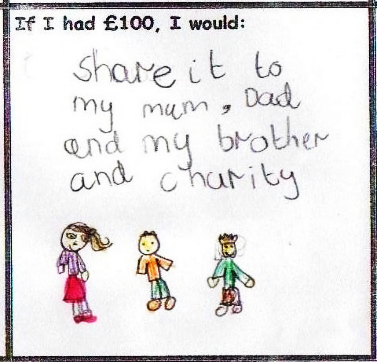 If I had £100, I would:
Share it to
my mum, Dad
and my brother
and charity